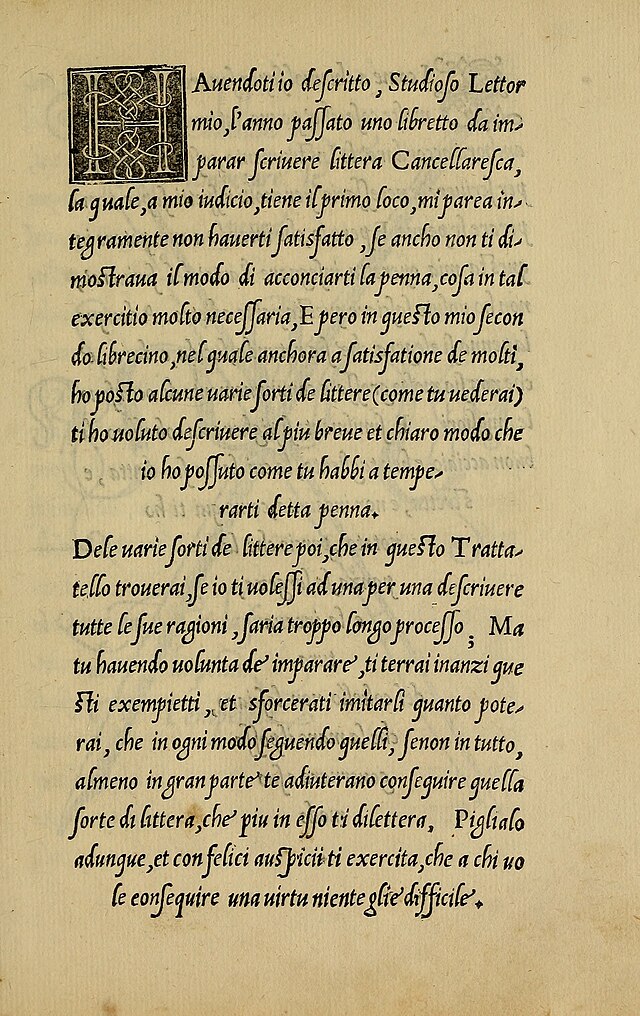 HAuendoti io deſcritto, Studioſo Lettor
mio, l'anno paſſato uno libretto da im-
parar ſcriuere littera Cancellareſca,
la quale, a mio iudicio, tiene il primo loco, mi parea in-
tegramente non hauerti ſatisfatto, ſe ancho non ti di-
moſtraua il modo di acconciarti la penna, coſa in tal
exercitio molto neceſſaria, E pero in queſto mio ſecon
do librecino, nel quale anchora a ſatisfatione de molti,
ho poſto alcune uarie ſorti de littere (come tu uederai)
ti ho uoluto deſcriuere al piu breue et chiaro modo che
io ho poſſuto come tu habbi a tempe-
rarti detta penna.
Dele uarie ſorti de littere poi, che in queſto Tratta-
tello trouerai, ſe io ti uoleſſi ad una per una deſcriuere
tutte le ſue ragioni, ſaria troppo longo proceſſo; Ma
tu hauendo uolunta de imparare, ti terrai inanzi que
ſti exempietti, et sforcerati imitarli quanto pote-
rai, che in ogni modo ſeguendo quelli, ſe non in tutto,
almeno in gran parte te adiuterano conſequire quella
ſorte di littera, che piu in eſſo ti dilettera. Piglialo
adunque, et con felici auſpicii ti exercita, che a chi uo
le conſequire una uirtu niente glie difficile.